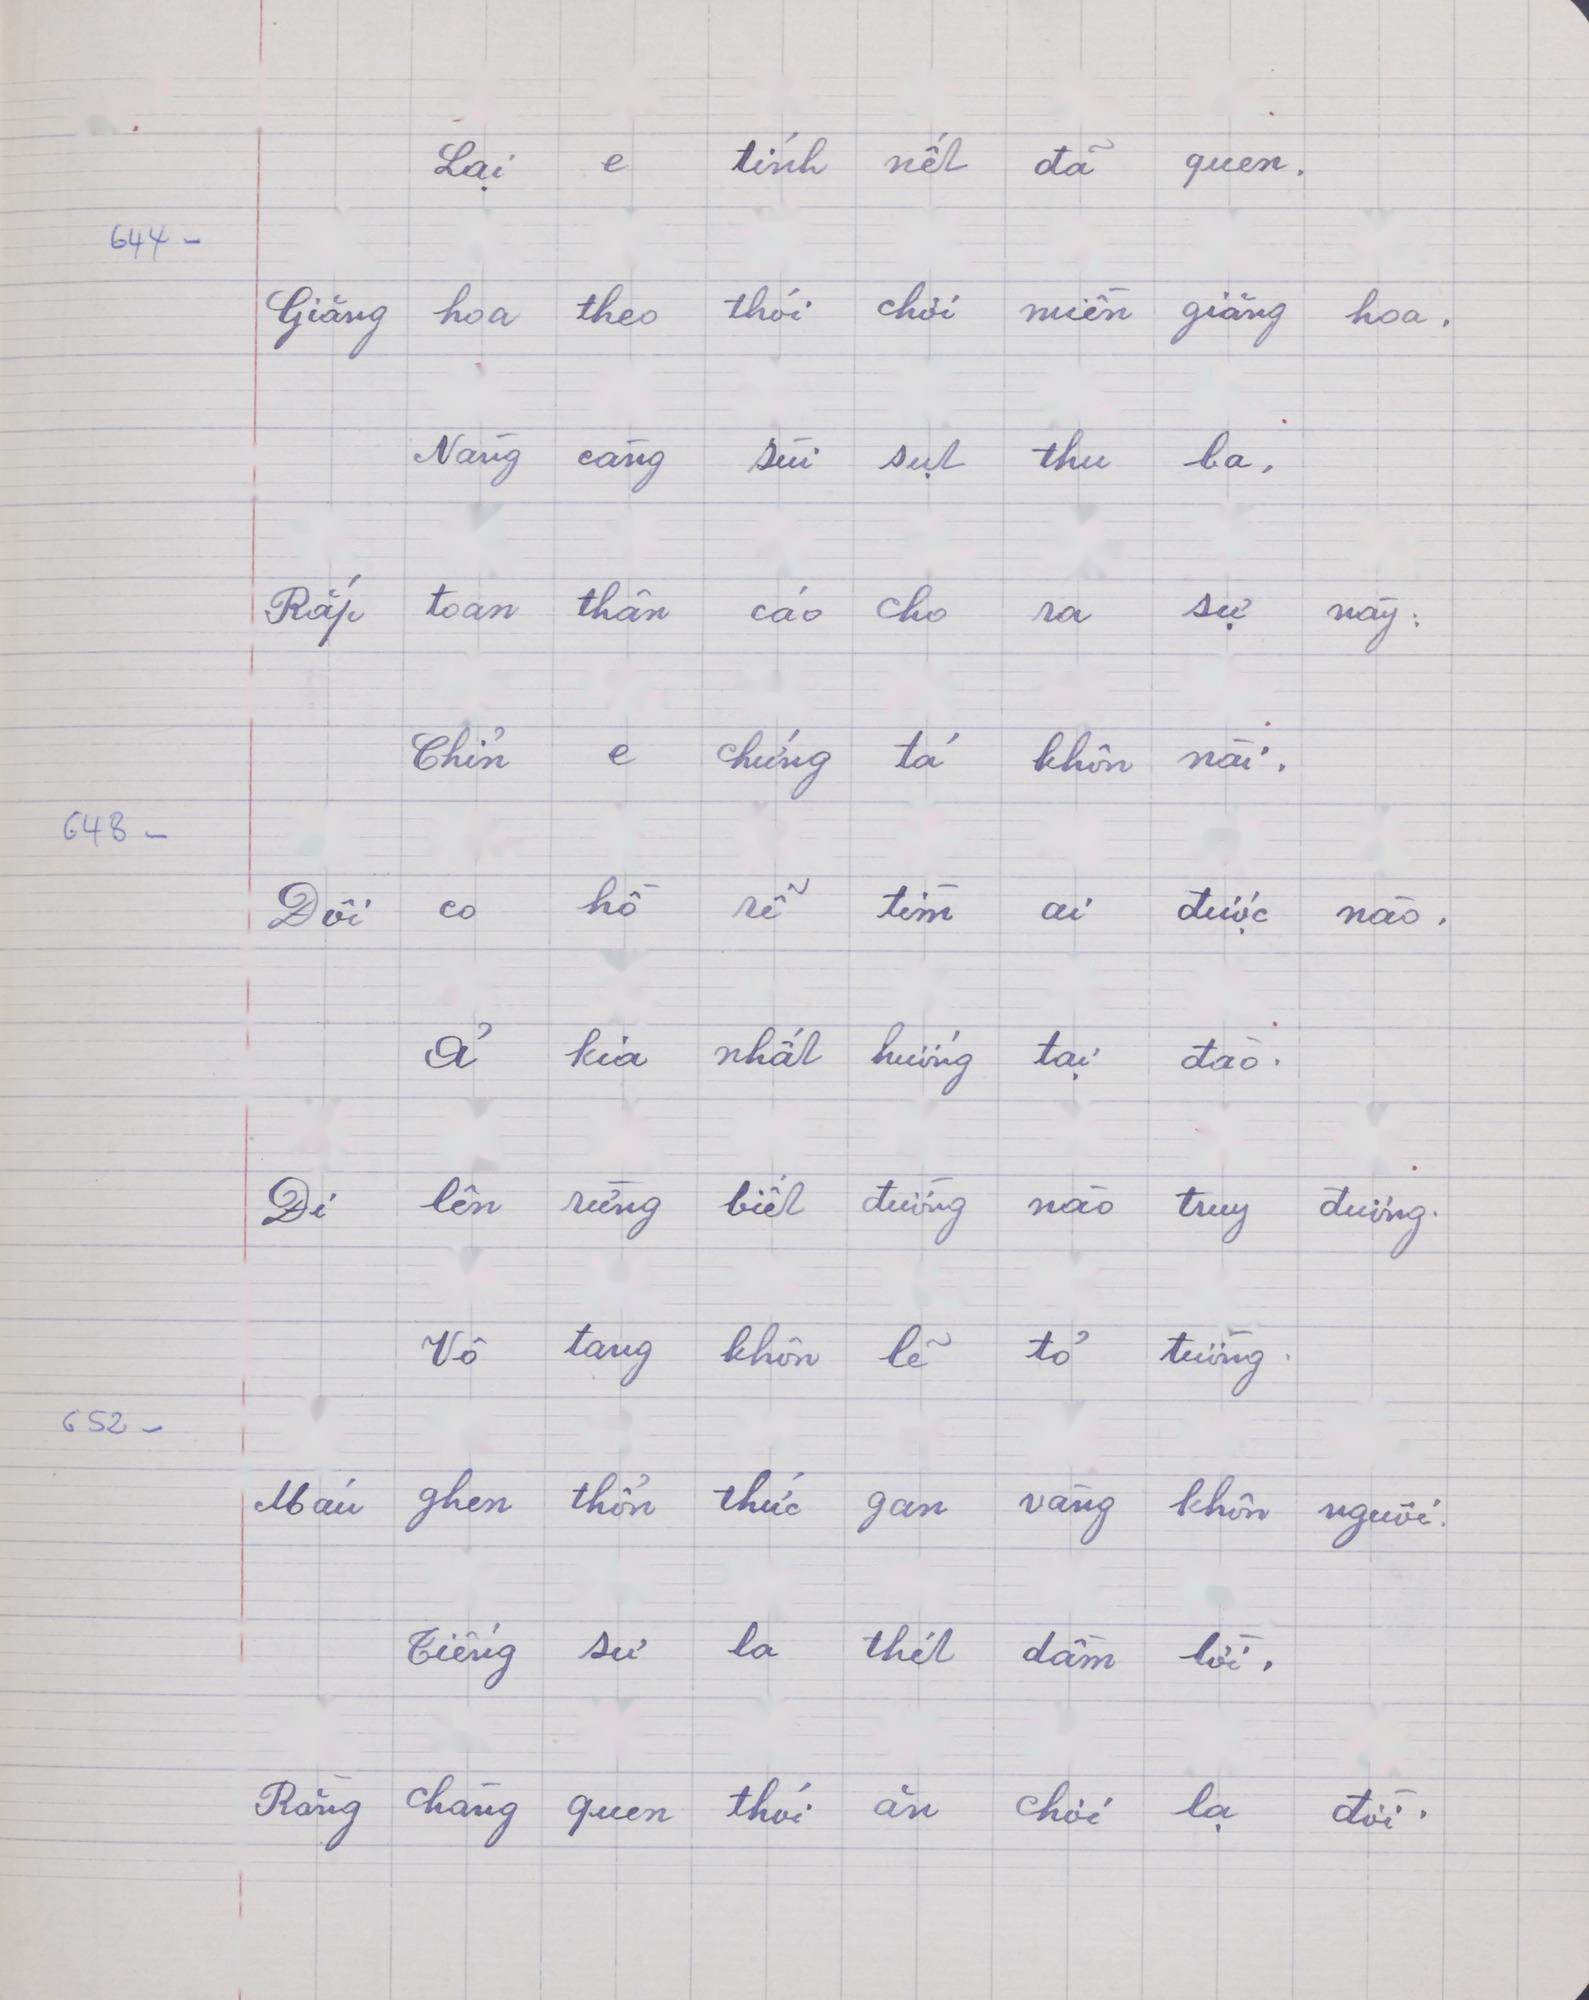 Lại e tính nết đã quen.
644 -
Giăng hoa theo thói chơi miền giăng hoa.
Nàng càng sùi sụt thu ba,
Rắp toan thân cáo cho ra sự này:
Chỉn e chứng tá khôn nài.
648 -
Dôi co hồ rễ tìm ai được nào.
Ả kia nhất hướng tại đào.
Di lên rừng biết đường nào truy đương.
Vô tang khôn lẽ tỏ tường.
652 -
Máu ghen thổn thức gan vàng khôn nguôi.
Tiếng sư la thét dầm lời,
Rằng chàng quen thói ăn chơi lạ đời.